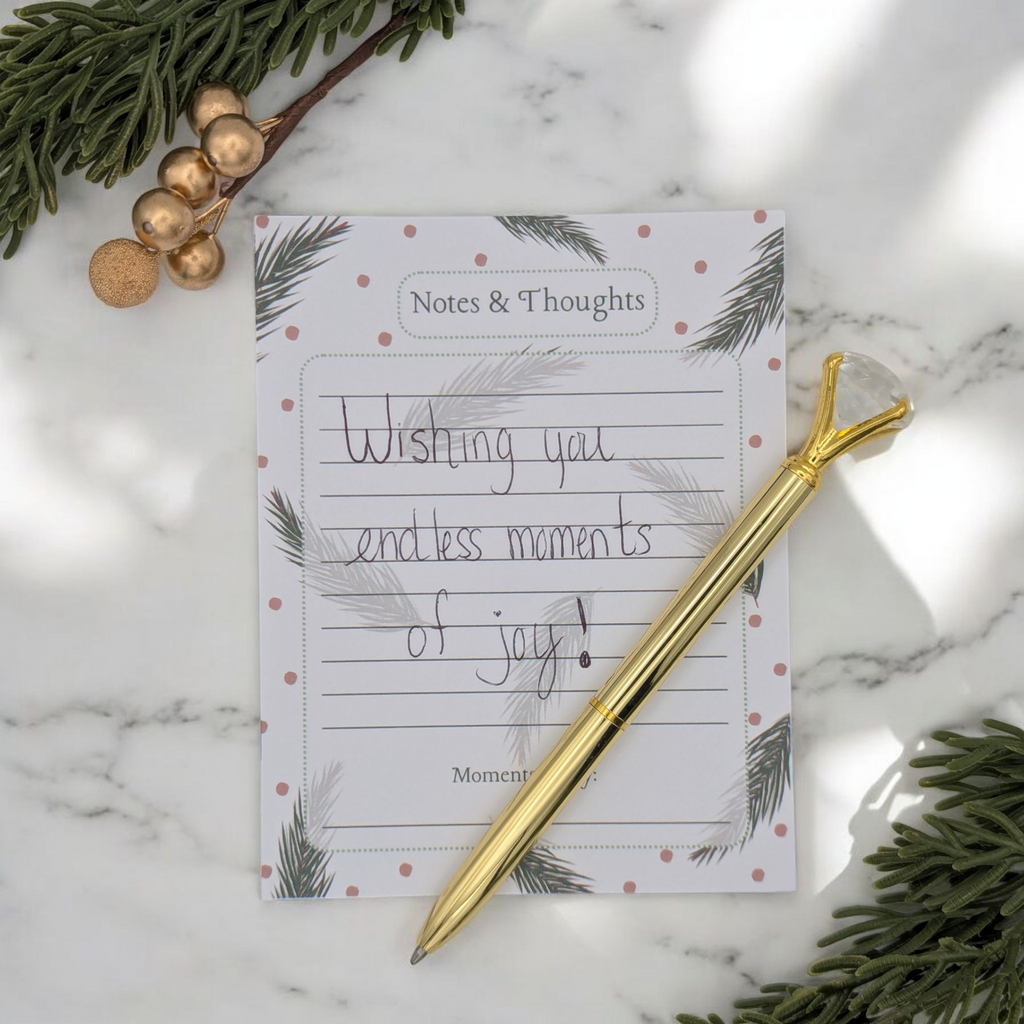 Notes & Thoughts
Wishing you
endless moments
of joy!